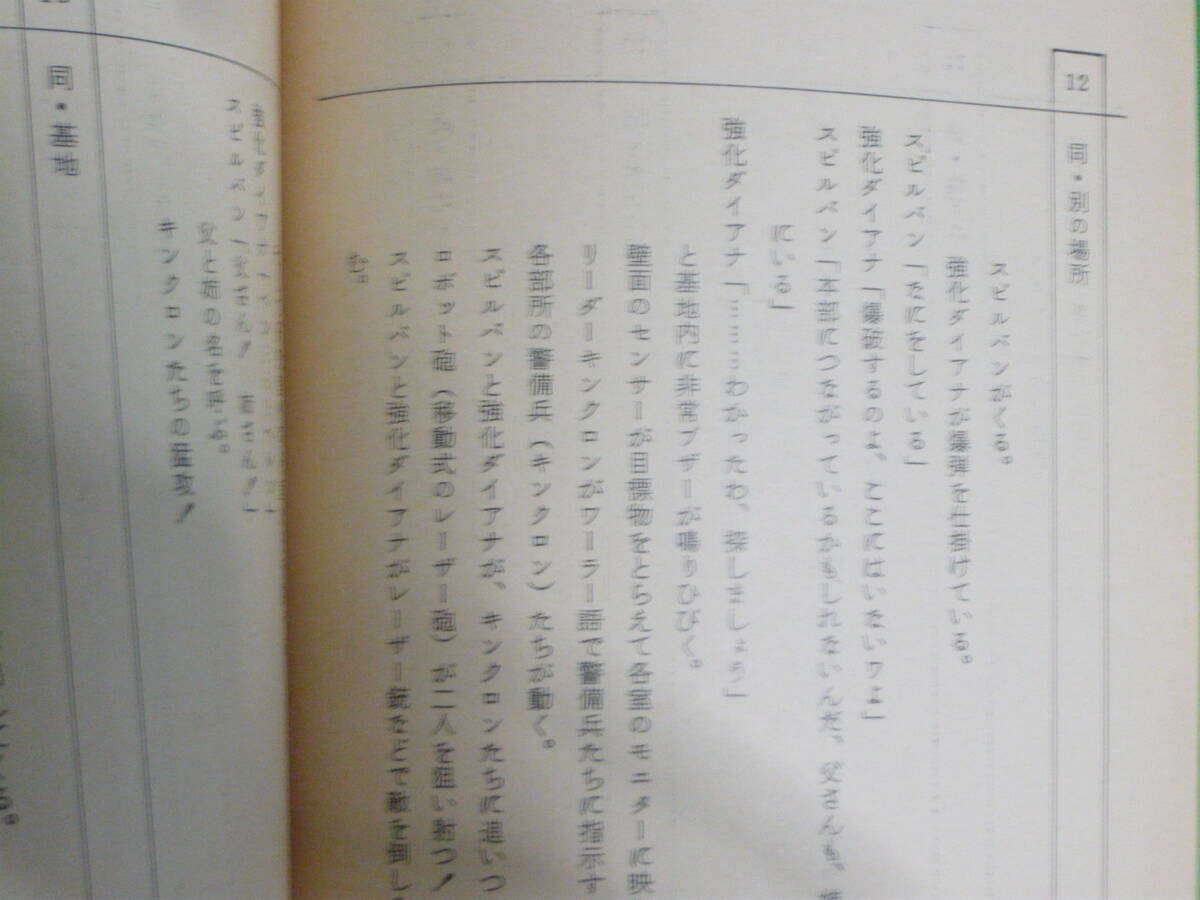 12
同・別の場所
スピルバンがくる。
強化ダイアナが爆弾を仕掛けている。
スピルバン「なにをしている」
強化ダイアナ「爆破するのよ、ここにはいないワよ」
スピルバン「本部につながっているかもしれないんだ、父さんも、
にいる」
強化ダイアナ「………わかったわ、探しましょう」
と基地内に非常ブザーが鳴りひびく。
壁面のセンサーが目標物をとらえて各室のモニターに映
リーダーキンクロンがワーラー語で警備兵たちに指示す
各部所の警備兵（キンクロン）たちが動く。
スピルバンと強化ダイアナが、キンクロンたちに追いつ
ロボット砲（移動式のレーザー砲）が二人を狙い射つ！
スピルバンと強化ダイアナがレーザー銃などで敵を倒し
む。
スピルバン「父さん！　姉さん！」
父と姉の名を呼ぶ。
キンクロンたちの猛攻！
同・基地